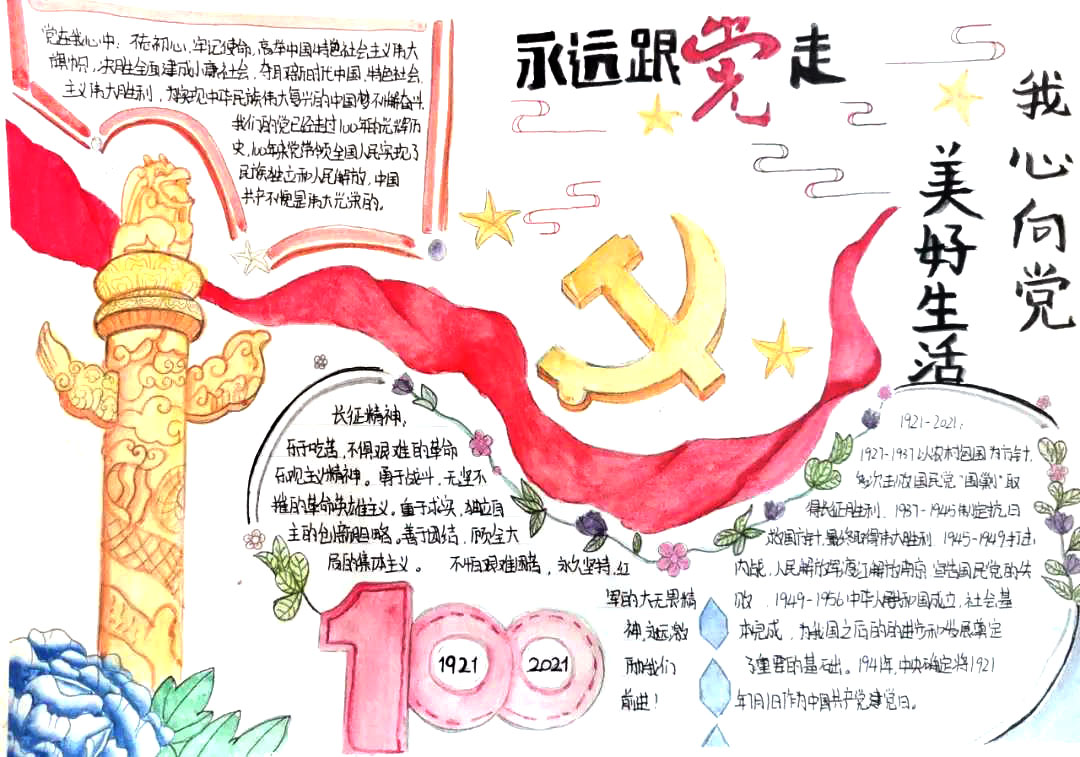 永远跟党走
我心向党
美好生活
党在我心中：不忘初心，牢记使命，高举中国特色社会主义伟大
旗帜，决胜全面建成小康社会，夺取新时代中国，特色社会，
主义伟大胜利，为实现中华民族伟大复兴的中国梦不懈奋斗
我们的党已经走过100年的光辉历
史，100年来党带领全国人民实现了
民族独立和人民解放，中国
共产不愧是伟大光荣的。
长征精神：
乐于吃苦，不惧艰难的革命
乐观主义精神。勇于战斗，无坚不
摧的革命英雄主义。重于求实，独立自
主的创新胆略。善于团结，顾全大
局的集体主义。 不怕艰难困苦，永久坚持，红
军的大无畏精
神，永远激
励我们
前进！
100
1921
2021
1921-2021：
1927-1937以农村包围为方针，
多次主攻国民党“围剿”取
得长征胜利，1937-1945制定抗日
救国方针，最终取得伟大胜利 1945-1949打过
内战，人民解放军渡江解放南京 宣告国民党的失
败，1949-1956中华人民共和国成立，社会基
本完成，为我国之后的的进步和发展奠定
了重要的基础。1941年，中央确定将1921
年7月1日作为中国共产党建党日。